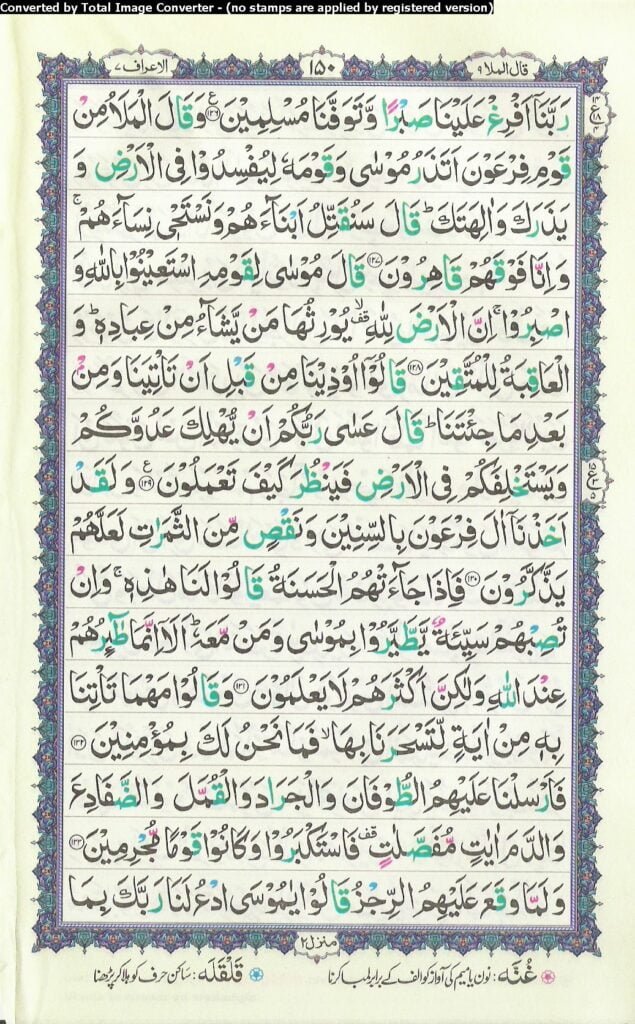 Converted by Total Image Converter - (no stamps are applied by registered version)
قال الملا ۹
١٥٠
الاعراف ۷
رَبَّنَاۤ اَفْرِغْ عَلَیْنَا صَبْرًا وَّ تَوَفَّنَا مُسْلِمِیْنَ ﴿۱۲۶﴾ وَ قَالَ الْمَلَاُ مِنْ
قَوْمِ فِرْعَوْنَ اَتَذَرُ مُوْسٰی وَ قَوْمَهٗ لِیُفْسِدُوْا فِی الْاَرْضِ وَ
یَذَرَكَ وَ اٰلِهَتَكَ ؕ قَالَ سَنُقَتِّلُ اَبْنَآءَهُمْ وَ نَسْتَحْیٖ نِسَآءَهُمْ ۚ
وَ اِنَّا فَوْقَهُمْ قٰهِرُوْنَ ﴿۱۲۷﴾ قَالَ مُوْسٰی لِقَوْمِهِ اسْتَعِیْنُوْا بِاللّٰهِ وَ
اصْبِرُوْا ۚ اِنَّ الْاَرْضَ لِلّٰهِ ۙ۫ یُوْرِثُهَا مَنْ یَّشَآءُ مِنْ عِبَادِهٖ ؕ وَ
الْعَاقِبَةُ لِلْمُتَّقِیْنَ ﴿۱۲۸﴾ قَالُوْۤا اُوْذِیْنَا مِنْ قَبْلِ اَنْ تَاْتِیَنَا وَ مِنْۢ
بَعْدِ مَا جِئْتَنَا ؕ قَالَ عَسٰی رَبُّكُمْ اَنْ یُّهْلِكَ عَدُوَّكُمْ
وَ یَسْتَخْلِفَكُمْ فِی الْاَرْضِ فَیَنْظُرَ كَیْفَ تَعْمَلُوْنَ ﴿۱۲۹﴾ وَ لَقَدْ
اَخَذْنَاۤ اٰلَ فِرْعَوْنَ بِالسِّنِیْنَ وَ نَقْصٍ مِّنَ الثَّمَرٰتِ لَعَلَّهُمْ
یَذَّكَّرُوْنَ ﴿۱۳۰﴾ فَاِذَا جَآءَتْهُمُ الْحَسَنَةُ قَالُوْا لَنَا هٰذِهٖ ۚ وَ اِنْ
تُصِبْهُمْ سَیِّئَةٌ یَّطَّیَّرُوْا بِمُوْسٰی وَ مَنْ مَّعَهٗ ؕ اَلَاۤ اِنَّمَا طٰٓئِرُهُمْ
عِنْدَ اللّٰهِ وَ لٰكِنَّ اَكْثَرَهُمْ لَا یَعْلَمُوْنَ ﴿۱۳۱﴾ وَ قَالُوْا مَهْمَا تَاْتِنَا
بِهٖ مِنْ اٰیَةٍ لِّتَسْحَرَنَا بِهَا ۙ فَمَا نَحْنُ لَكَ بِمُؤْمِنِیْنَ ﴿۱۳۲﴾
فَاَرْسَلْنَا عَلَیْهِمُ الطُّوْفَانَ وَ الْجَرَادَ وَ الْقُمَّلَ وَ الضَّفَادِعَ
وَ الدَّمَ اٰیٰتٍ مُّفَصَّلٰتٍ ۫ فَاسْتَكْبَرُوْا وَ كَانُوْا قَوْمًا مُّجْرِمِیْنَ ﴿۱۳۳﴾
وَ لَمَّا وَقَعَ عَلَیْهِمُ الرِّجْزُ قَالُوْا یٰمُوْسَی ادْعُ لَنَا رَبَّكَ بِمَا
منزل ۲
غُنَّه: نون یا میم کی آواز کو الف کے برابر لمبا کرنا
قَلْقَلَه: ساکن حرف کو ہلا کر پڑھنا